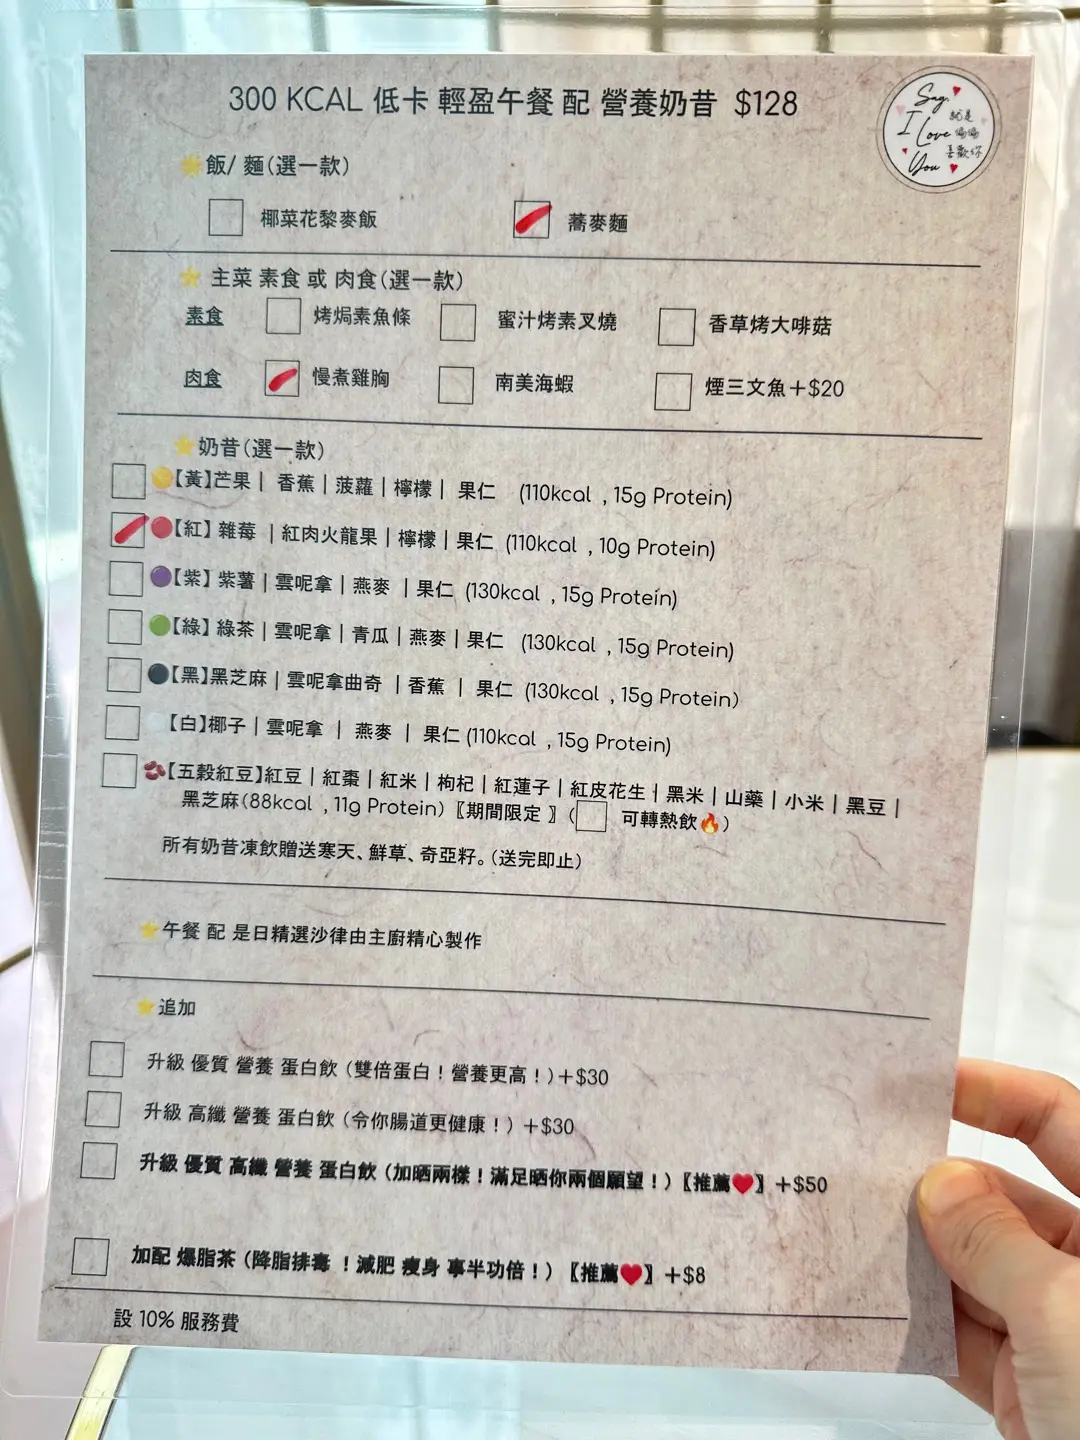 300 KCAL 低卡 輕盈午餐 配 營養奶昔 $128
Say, I Love You 就是 偏偏 喜歡你
飯/ 麵(選一款)
椰菜花黎麥飯 蕎麥麵
主菜 素食 或 肉食(選一款)
素食 烤焗素魚條 蜜汁烤素叉燒 香草烤大啡菇
肉食 慢煮雞胸 南美海蝦 煙三文魚+$20
奶昔(選一款)
【黃】芒果 | 香蕉 | 菠蘿 | 檸檬 | 果仁 (110kcal , 15g Protein)
【紅】雜莓 | 紅肉火龍果 | 檸檬 | 果仁 (110kcal , 10g Protein)
【紫】紫薯 | 雲呢拿 | 燕麥 | 果仁 (130kcal , 15g Protein)
【綠】綠茶 | 雲呢拿 | 青瓜 | 燕麥 | 果仁 (130kcal , 15g Protein)
【黑】黑芝麻 | 雲呢拿曲奇 | 香蕉 | 果仁 (130kcal , 15g Protein)
【白】椰子 | 雲呢拿 | 燕麥 | 果仁 (110kcal , 15g Protein)
【五穀紅豆】紅豆 | 紅棗 | 紅米 | 枸杞 | 紅蓮子 | 紅皮花生 | 黑米 | 山藥 | 小米 | 黑豆 |
黑芝麻(88kcal , 11g Protein)〖期間限定 〗( 可轉熱飲🔥)
所有奶昔凍飲贈送寒天、鮮草、奇亞籽。(送完即止)
午餐 配 是日精選沙律由主廚精心製作
追加
升級 優質 營養 蛋白飲 (雙倍蛋白！營養更高！)+$30
升級 高纖 營養 蛋白飲 (令你腸道更健康！) +$30
升級 優質 高纖 營養 蛋白飲 (加晒兩樣！滿足晒你兩個願望！)〖推薦❤️〗+$50
加配 爆脂茶 (降脂排毒 ！減肥 瘦身 事半功倍！)〖推薦❤️〗+$8
設 10% 服務費